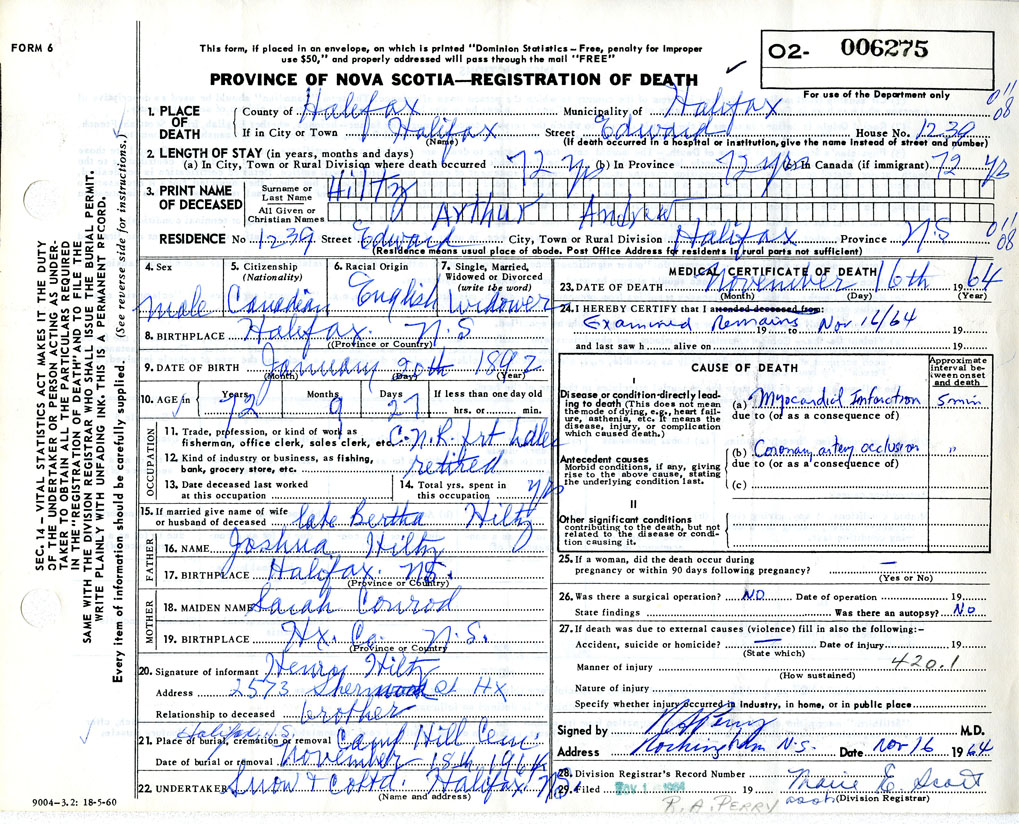 FORM 6
This form, if placed in an envelope, on which is printed "Dominion Statistics – Free, penalty for improper
use $50," and properly addressed will pass through the mail "FREE"
PROVINCE OF NOVA SCOTIA—REGISTRATION OF DEATH
O2- 006275
For use of the Department only
011
08
1. PLACE OF DEATH
County of Halifax Municipality of Halifax
If in City or Town Halifax Street Edward House No. 1239
(Name) (If death occurred in a hospital or institution, give the name instead of street and number)
2. LENGTH OF STAY (in years, months and days)
(a) In City, Town or Rural Division where death occurred 72 yrs (b) In Province 72 yrs (c) in Canada (if immigrant) 72 yrs
3. PRINT NAME OF DECEASED
Surname or Last Name Hiltz
All Given or Christian Names Arthur Andrew
RESIDENCE No 1239 Street Edward City, Town or Rural Division Halifax Province NS
011
08
(Residence means usual place of abode. Post Office Address for residents in rural parts not sufficient)
4. Sex male
5. Citizenship (Nationality) Canadian
6. Racial Origin English
7. Single, Married, Widowed or Divorced (write the word) Widower
8. BIRTHPLACE Halifax N.S
(Province or Country)
9. DATE OF BIRTH January 20th 1892
(Month) (Day) (Year)
10. AGE in Years 72 Months 9 Days 27 If less than one day old hrs. or min.
OCCUPATION
11. Trade, profession, or kind of work as fisherman, office clerk, sales clerk, etc. C.N.R. frt
12. Kind of industry or business, as fishing, bank, grocery store, etc. retired
13. Date deceased last worked at this occupation
14. Total yrs. spent in this occupation yrs
15. If married give name of wife or husband of deceased late Bertha Hiltz
FATHER
16. NAME Joshua Hiltz
17. BIRTHPLACE Halifax NS.
(Province or Country)
MOTHER
18. MAIDEN NAME Sarah Conrod
19. BIRTHPLACE Hx. Co. N.S.
(Province or Country)
20. Signature of informant Henry Hiltz
Address 2573 St Hx
Relationship to deceased brother
Halifax N.S.
21. Place of burial, cremation or removal Camp Hill Cem.
Date of burial or removal November 18th 1964
22. UNDERTAKER Snow & Co Ltd. Halifax NS
(Name and address)
9004-3.2: 18-5-60
MEDICAL CERTIFICATE OF DEATH
23. DATE OF DEATH November 16th 1964
(Month) (Day) (Year)
24. I HEREBY CERTIFY that I attended deceased from:
Examined Remains Nov 16/64
19 to 19
and last saw h alive on 19
CAUSE OF DEATH
Approximate interval between onset and death
I
Disease or condition directly leading to death (This does not mean the mode of dying, e.g., heart failure, asthenia, etc. It means the disease, injury, or complication which caused death.)
(a) Myocardial Infarction 5 min
due to (or as a consequence of)
Antecedent causes
Morbid conditions, if any, giving rise to the above cause, stating the underlying condition last.
(b) Coronary artery occlusion "
due to (or as a consequence of)
(c)
II
Other significant conditions
contributing to the death, but not related to the disease or condition causing it.
25. If a woman, did the death occur during
pregnancy or within 90 days following pregnancy? —
(Yes or No)
26. Was there a surgical operation? NO Date of operation 19
State findings Was there an autopsy? No
27. If death was due to external causes (violence) fill in also the following:–
Accident, suicide or homicide? — Date of injury 19
(State which)
Manner of injury 420.1
(How sustained)
Nature of injury
Specify whether injury occurred in industry, in home, or in public place
Signed by R A Perry M.D.
Address Rockingham N.S. Date Nov 16 1964
28. Division Registrar's Record Number
29. Filed 19 Marie E. Scott
(Division Registrar)
R. A. PERRY
SEC. 14 – VITAL STATISTICS ACT MAKES IT THE DUTY
OF THE UNDERTAKER OR PERSON ACTING AS UNDER-
TAKER TO OBTAIN ALL THE PARTICULARS REQUIRED
IN THE "REGISTRATION OF DEATH" AND TO FILE THE
SAME WITH THE DIVISION REGISTRAR WHO SHALL ISSUE THE BURIAL PERMIT.
WRITE PLAINLY WITH UNFADING INK. THIS IS A PERMANENT RECORD.
Every item of information should be carefully supplied. (See reverse side for instructions.)